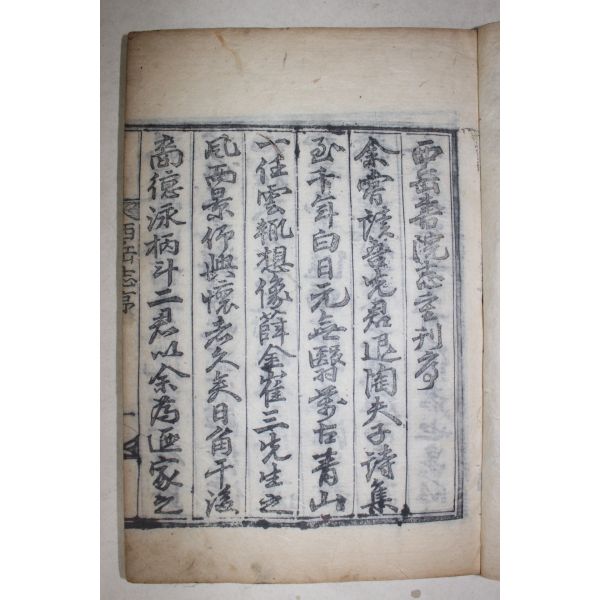 西岳書院志重刊序
余嘗讀君退陶夫子詩集
至千年白日元無翳萬古青山
一任雲輒想像薛金崔三先生之
風而景仰興懷者久矣日後
裔德泳柄斗二君以余為家之
西岳志序 一